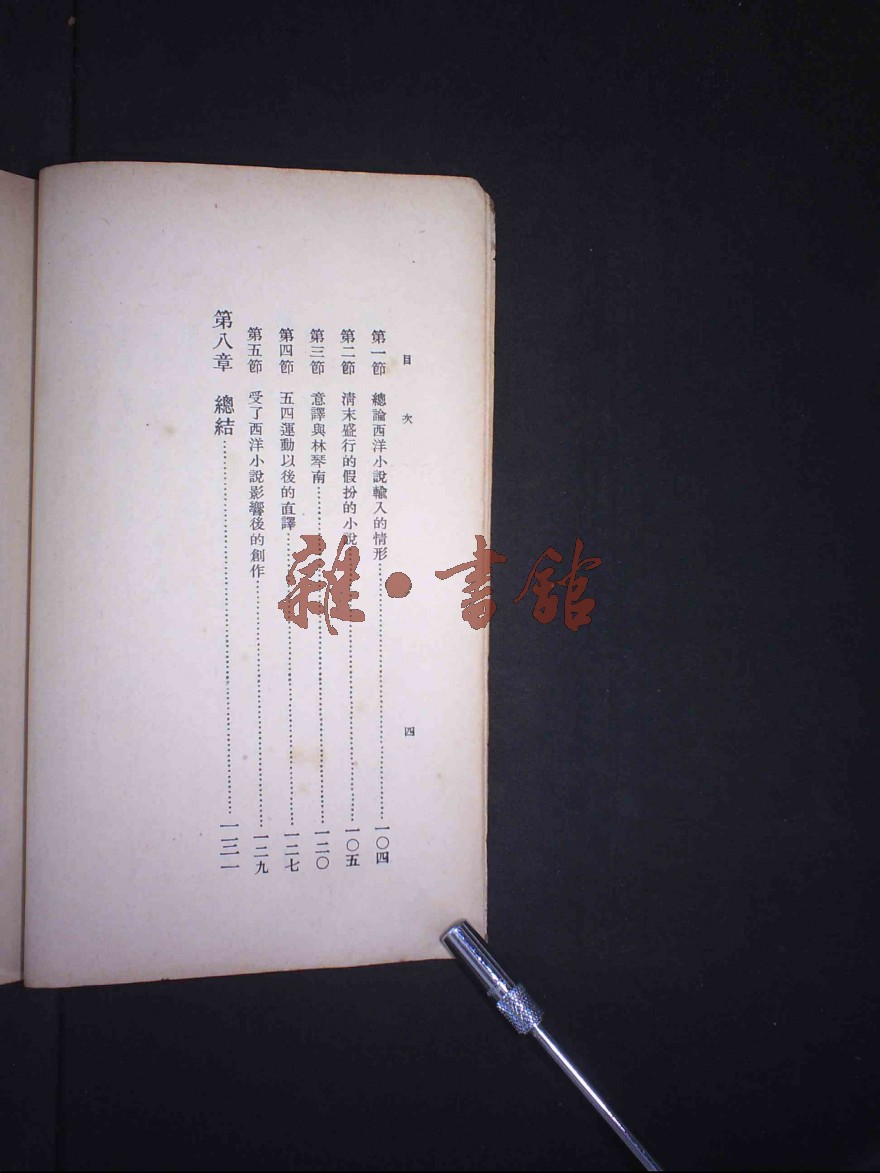 目次
四
第一節 總論西洋小說輸入的情形⋯⋯一〇四
第二節 淸末盛行的假扮的小說⋯⋯一〇五
第三節 意譯與林琴南⋯⋯一二〇
第四節 五四運動以後的直譯⋯⋯一二七
第五節 受了西洋小說影響後的創作⋯⋯一二九
第八章 總結⋯⋯一三一
雜·書館